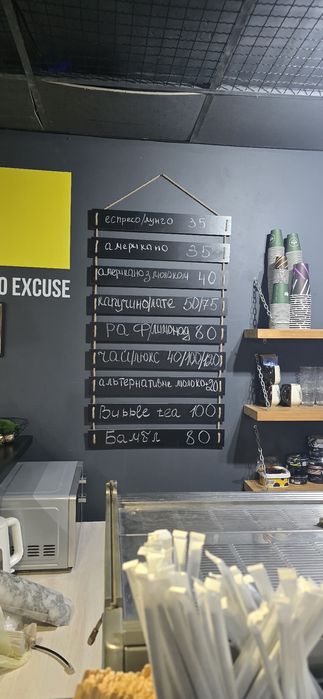 O EXCUSE
еспресо/лунго 35
американо 35
американо з молоком 40
капучино/лате 50/75
РАФ/лимонад 80
ЧАЙ/люкс 40/100/120
альтернативне молоко +20
Bubble tea 100
Бамбл 80